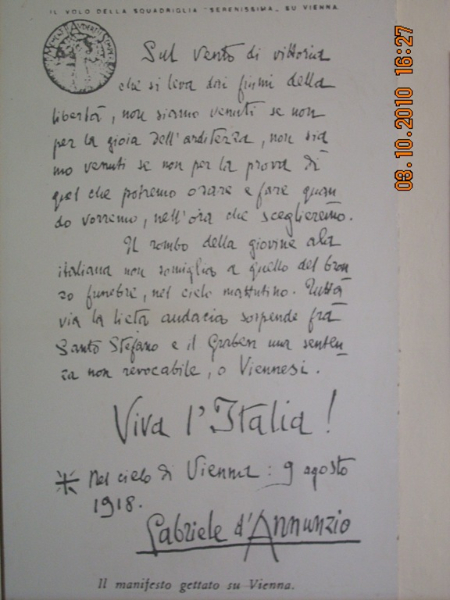 IL VOLO DELLA SQUADRIGLIA "SERENISSIMA" SU VIENNA
03.10.2010 16:27
Sul vento di vittoria
che si leva dai fiumi della
libertà, non siamo venuti se non
per la gioia dell'arditezza, non sia
mo venuti se non per la prova di
quel che potremo osare e fare quan
do vorremo, nell'ora che sceglieremo.
Il rombo della giovine ala
italiana non somiglia a quello del bron
zo funebre, nel cielo mattutino. Tutta
via la lieta audacia sospende fra
Santo Stefano e il Graben una senten
za non revocabile, o Viennesi.
Viva l'Italia!
Nel cielo di Vienna: 9 agosto
1918.
Gabriele d'Annunzio
Il manifesto gettato su Vienna.